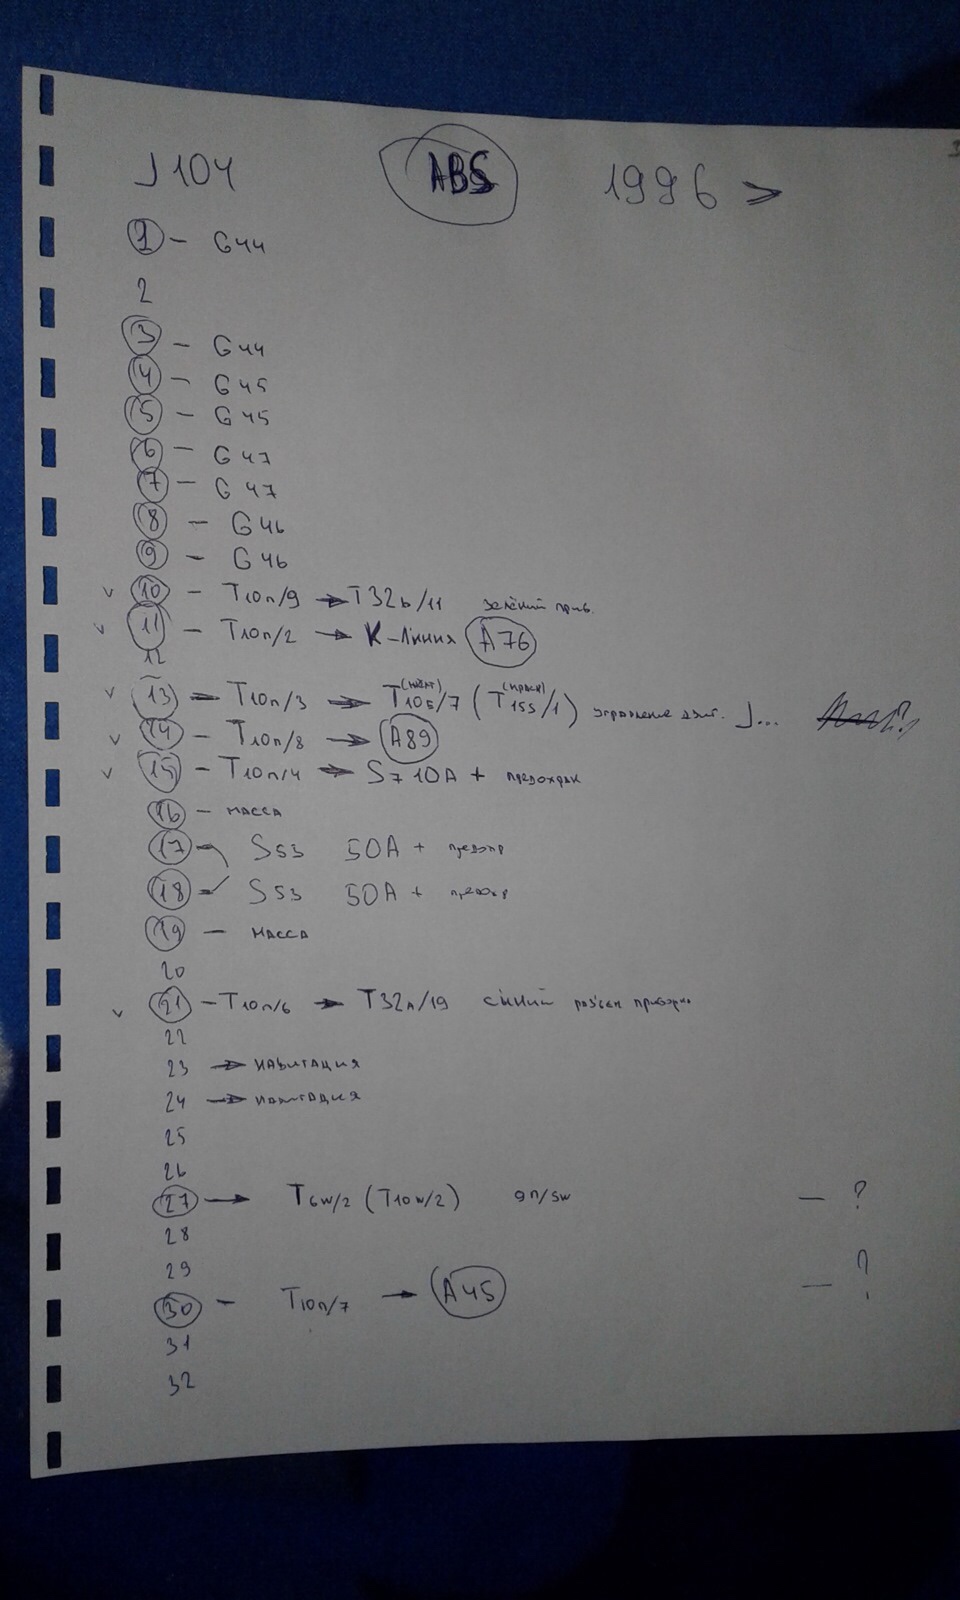 J104 ABS 1996 >
1 – G44
2
3 – G44
4 – G45
5 – G45
6 – G47
7 – G47
8 – G46
9 – G46
v 10 – T10п/9 → T32b/11 зелёный приб.
v 11 – T10п/2 → К-линия A76
12
v 13 – T10п/3 → T10s/7 (T15s/1) управление двиг. J...
v 14 – T10п/8 → A89
v 15 – T10п/4 → S7 10A + предохран
16 – масса
17 – S53 50A + предохр
18 – S53 50A + предохр
19 – масса
20
v 21 – T10п/6 → T32a/19 синий раз'ём
22
23 → навигация
24 → навигация
25
26
27 → T6w/2 (T10w/2) gn/sw – ?
28
29
30 – T10п/7 → A45 – ?
31
32